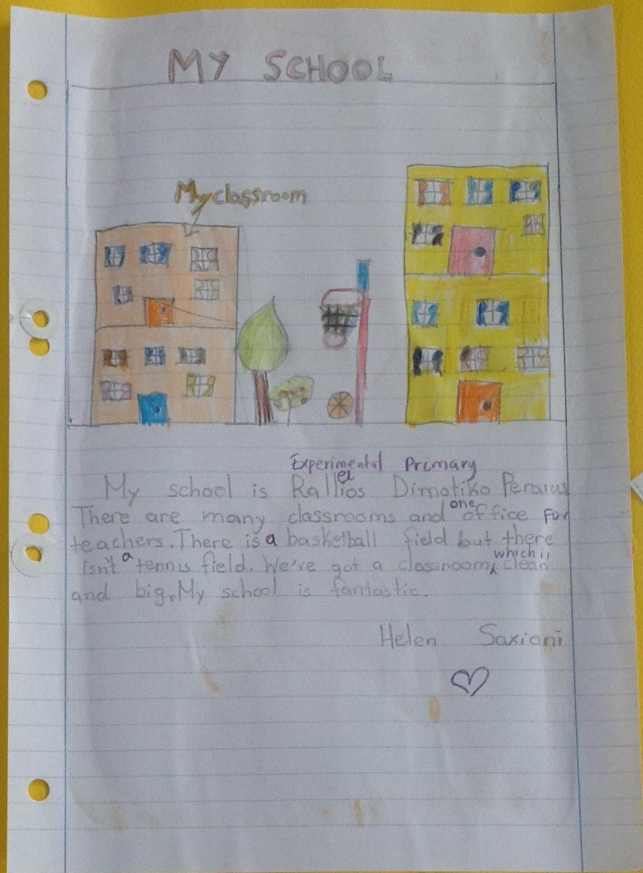 MY SCHOOL
My classroom
Experimental Primary
My school is Rallios Dimotiko Peraius
ei
There are many classrooms and one office for
teachers. There is a basketball field but there
isn't a tennis field. We've got a classroom, which is clean
and big. My school is fantastic.
Helen Saxioni